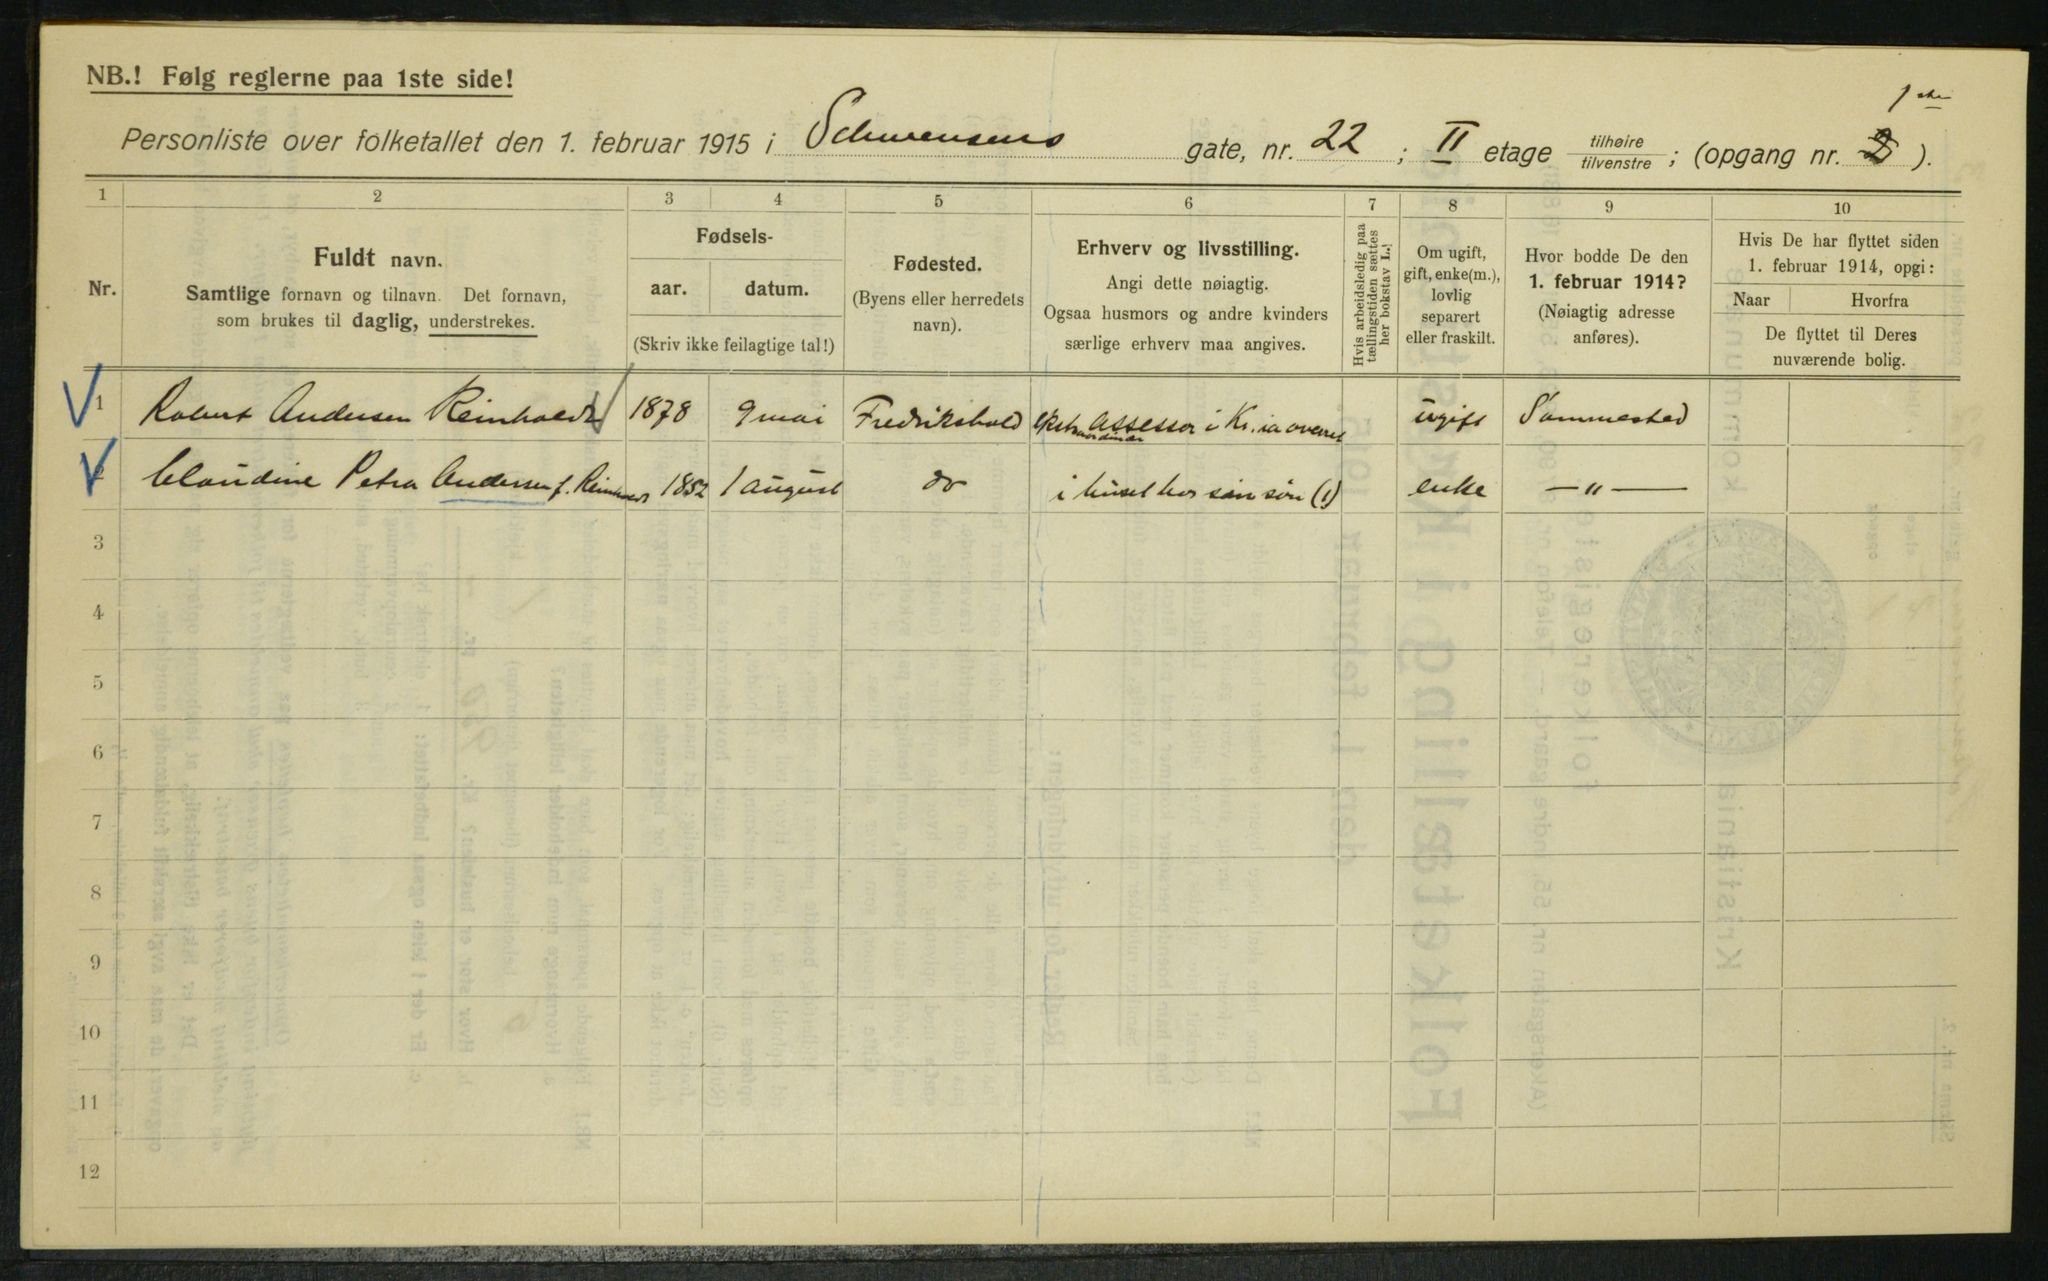 NB.! Følg reglerne paa 1ste side!
1ste
Personliste over folketallet den 1. februar 1915 i Schwensens gate, nr. 22 ; II etage tilhøire tilvenstre ; (opgang nr. 2 ).
1 2 3 4 5 6 7 8 9 10
Nr.
Fuldt navn.
Samtlige fornavn og tilnavn. Det fornavn,
som brukes til daglig, understrekes.
Fødsels-
aar. datum.
(Skriv ikke feilagtige tal!)
Fødested.
(Byens eller herredets
navn).
Erhverv og livsstilling.
Angi dette nøiagtig.
Ogsaa husmors og andre kvinders
særlige erhverv maa angives.
Hvis arbeidsledig paa
tællingstiden sættes
her bokstav L.!
Om ugift,
gift, enke(m.),
lovlig
separert
eller fraskilt.
Hvor bodde De den
1. februar 1914?
(Nøiagtig adresse
anføres).
Hvis De har flyttet siden
1. februar 1914, opgi:
Naar Hvorfra
De flyttet til Deres
nuværende bolig.
1 Robert Andersen Reinholdt 1878 9 mai Fredrikshald ekstraordinær Assessor i Kr.ia overret ugift Sammested
2 Claudine Petra Andersen f. Reinholdt 1852 1 august do i huset hos sin søn (1) enke — " —
3
4
5
6
7
8
9
10
11
12